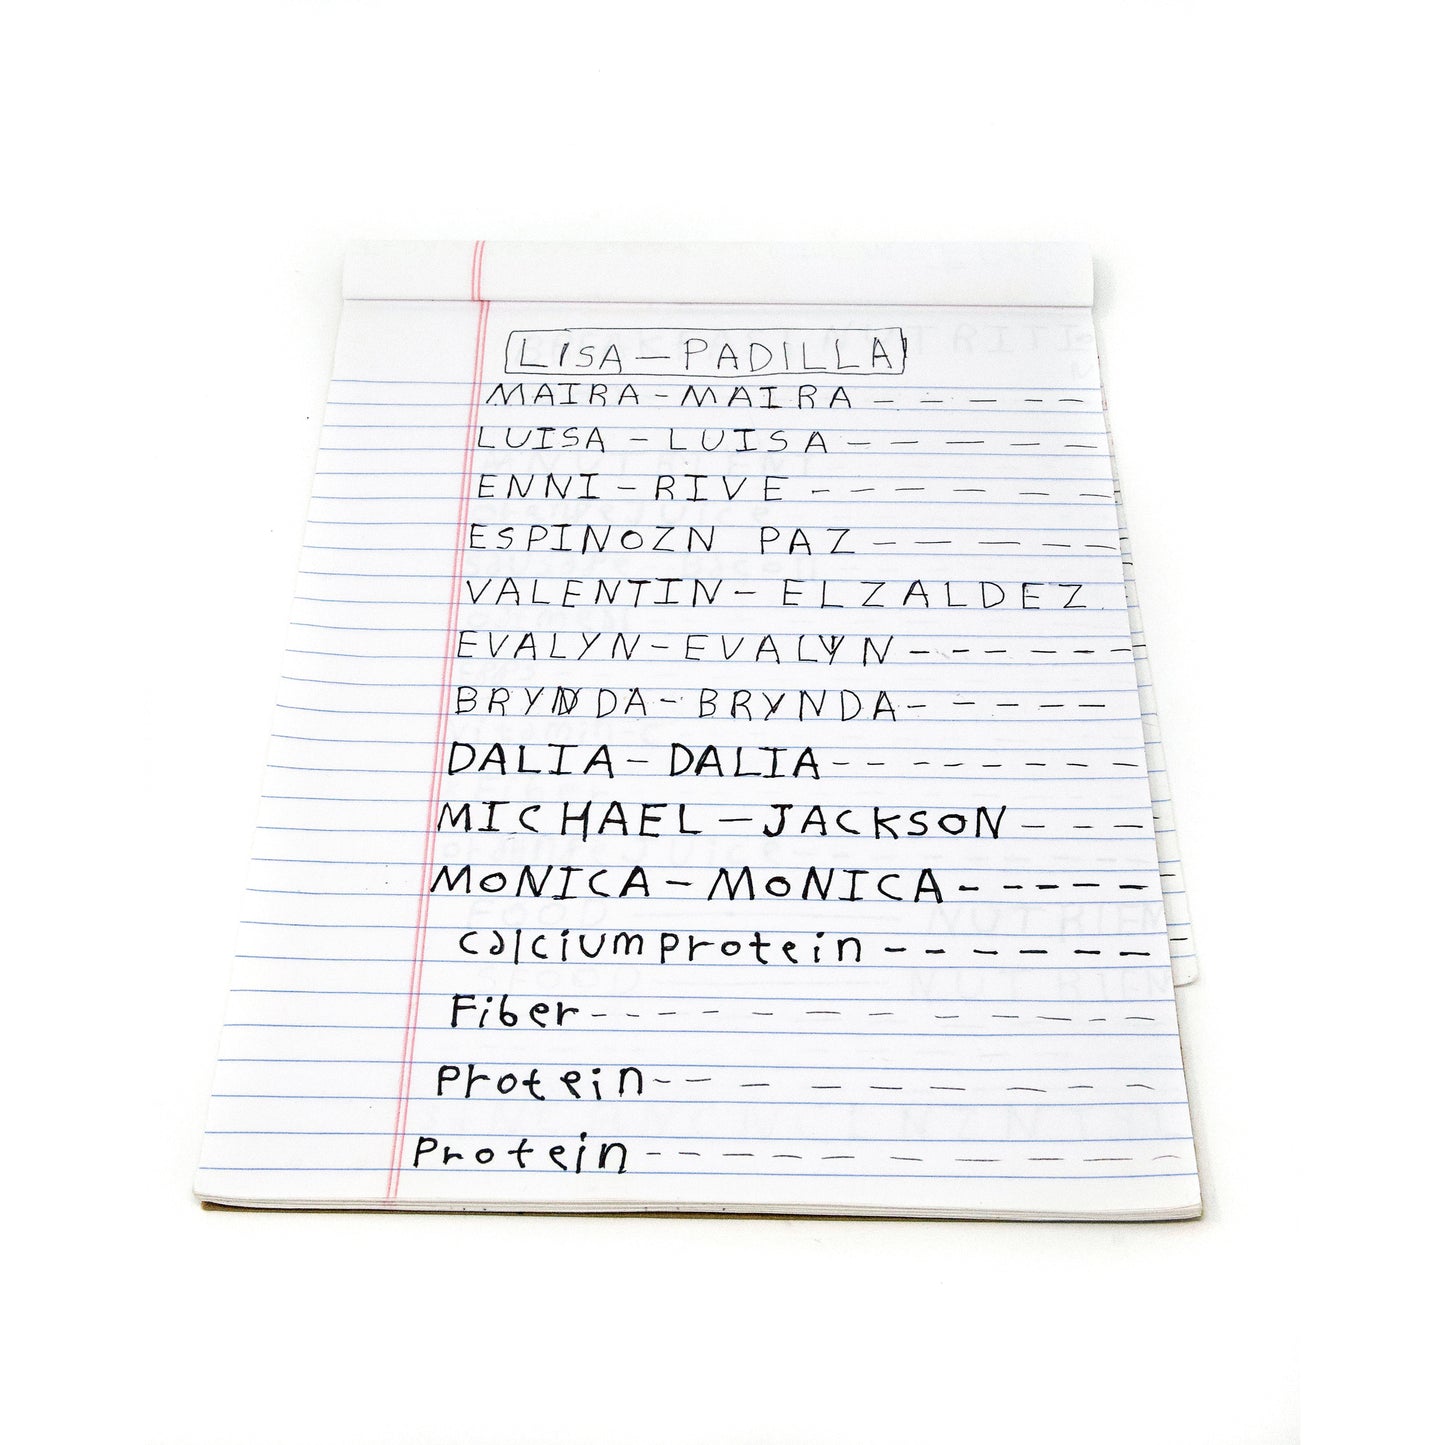 LISA — PADILLA
MAIRA - MAIRA - - - - -
LUISA - LUISA - - - - - -
ENNI - RIVE - - - - - - -
ESPINOZN PAZ - - - - - -
VALENTIN - ELZALDEZ
EVALYN - EVALYN - - - - - -
BRYNDA - BRYNDA - - - - -
DALIA - DALIA - - - - - - - -
MICHAEL - JACKSON - - -
MONICA - MONICA - - - - -
calciumprotein - - - - - -
Fiber - - - - - - - - - - -
Protein - - - - - - - - -
Protein - - - - - - - - - -